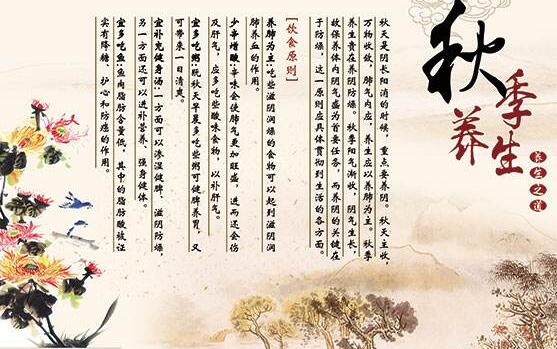 秋季养生
养生之道
秋天是阴长阳消的时候，重点要养阴。秋天主收，
万物收敛，肺气内应，养生应以养肺为主。秋季
养生贵在养阴防燥。秋季阳气渐收，阴气生长，
故保养体内阴气盛为首要任务，而养阴的关键在
于防燥，这一原则应具体贯彻到生活的各方面。
[饮食原则]
养肺为主:吃些滋阴润燥的食物可以起到滋阴润
肺养血的作用。
少辛增酸:辛味食使肺气更加旺盛，进而还会伤
及肝气，应多吃些酸味食物，以补肝气。
宜多吃粥:秋天早晨多吃些粥可健脾养胃，又
可带来一日清爽。
宜补充健身汤:一方面可以渗湿健脾、滋阴防燥，
另一方面还可以进补营养、强身健体。
宜多吃鱼:鱼肉脂肪含量低，其中的脂肪酸被证
实有降糖、护心和防癌的作用。